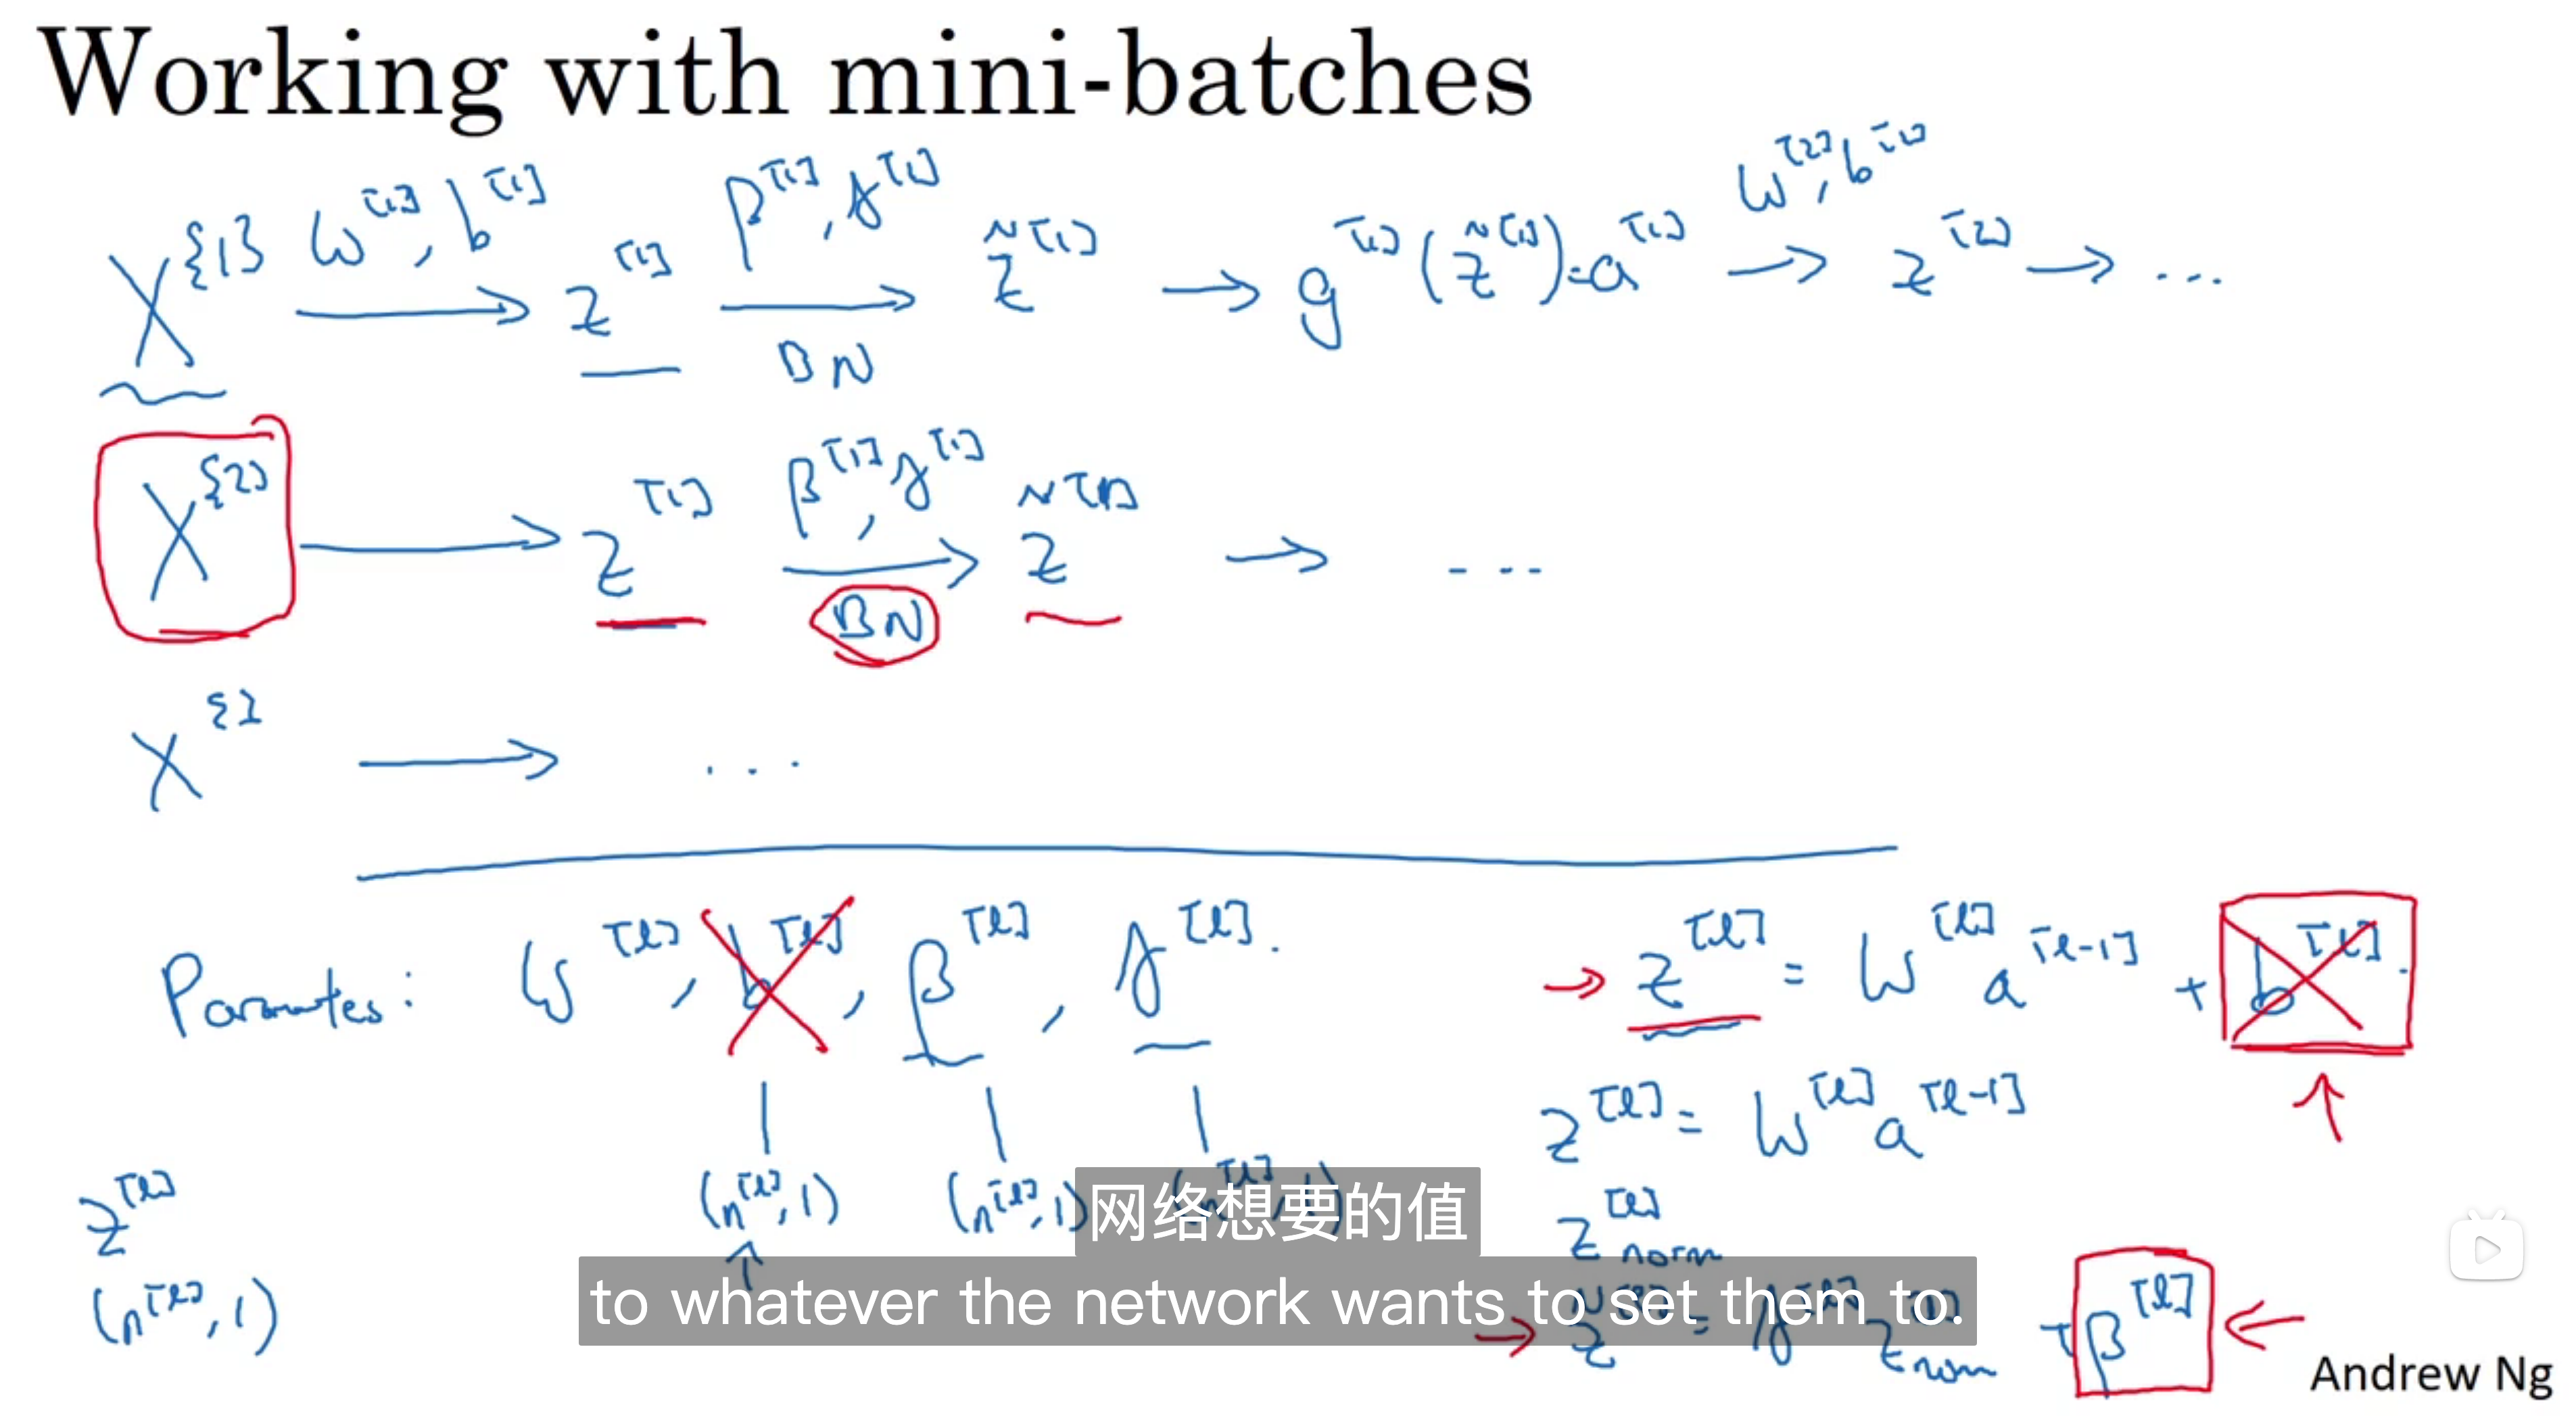 Working with mini-batches
X^{1} W^[1], b^[1] → z^[1] β^[1], γ^[1] → BN z̃^[1] → g^[1](z̃^[1])=a^[1] W^[2], b^[2] → z^[2] → ...
X^{2} → z^[1] β^[1], γ^[1] → BN z̃^[1] → ...
X^{3} → ...
Parameters: W^[l], b^[l], β^[l], γ^[l].
(n^[l], 1) (n^[l], 1) (n^[l], 1)
z^[l]
(n^[l], 1)
→ z^[l] = W^[l] a^[l-1] + b^[l].
z^[l] = W^[l] a^[l-1]
z^[l] norm
→ z̃^[l] = γ^[l] z^[l] norm + β^[l] ←
网络想要的值
to whatever the network wants to set them to.
Andrew Ng